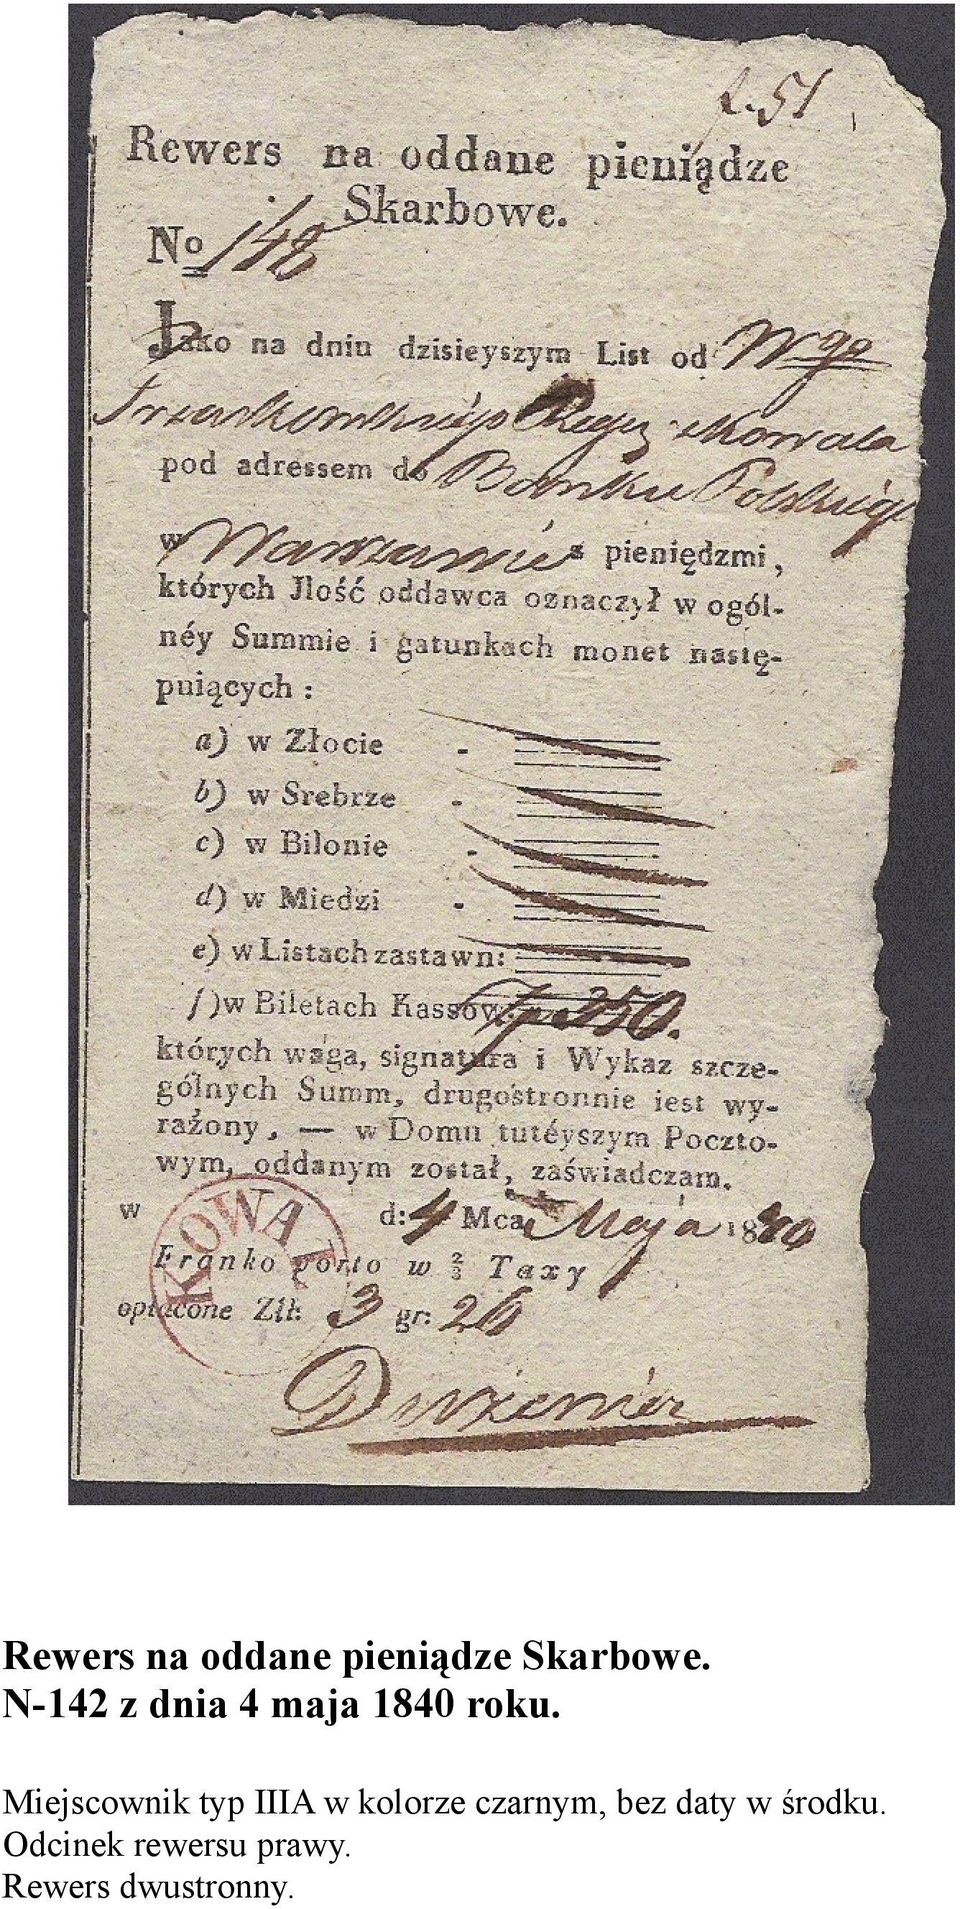 f. 51
Rewers na oddane pieniądze
Skarbowe.
No 148
Jako na dniu dzisieyszym List od Wgo
pod adressem do Banku Polskiego
w Warszawie z pieniędzmi,
których Jlość oddawca oznaczył w ogól-
néy Summie i gatunkach monet nastę-
puiących :
a) w Złocie -
b) w Srebrze -
c) w Bilonie -
d) w Miedzi -
e) w Listach zastawn:
f) w Biletach Kassow. 350.
których waga, signatura i Wykaz szcze-
gólnych Summ, drugostronnie iest wy-
rażony, — w Domu tutéyszym Poczto-
wym, oddanym został, zaświadczam.
w KOWAL d: 4 Mca Maja 1840
Franko porto w 2/3 Taxy
opłacone Złt: 3 gr: 26
Rewers na oddane pieniądze Skarbowe.
N-142 z dnia 4 maja 1840 roku.
Miejscownik typ IIIA w kolorze czarnym, bez daty w środku.
Odcinek rewersu prawy.
Rewers dwustronny.